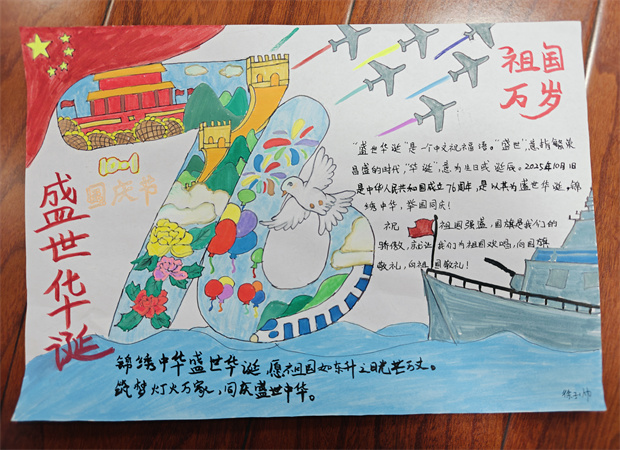 祖国
万岁
"盛世华诞"是一个中文祝福语。"盛世"意指繁荣
昌盛的时代,"华诞"意为生日或诞辰。2025年10月1日
是中华人民共和国成立76周年,是以其为盛世华诞,锦
绣中华,举国同庆!
祝 祖国强盛,国旗是我们的
骄傲,就让我们为祖国欢唱,向国旗
敬礼,向祖国敬礼!
国庆节
盛世华诞
76
锦绣中华盛世华诞,愿祖国如东升之日光芒万丈。
筑梦灯火万家,同庆盛世中华。